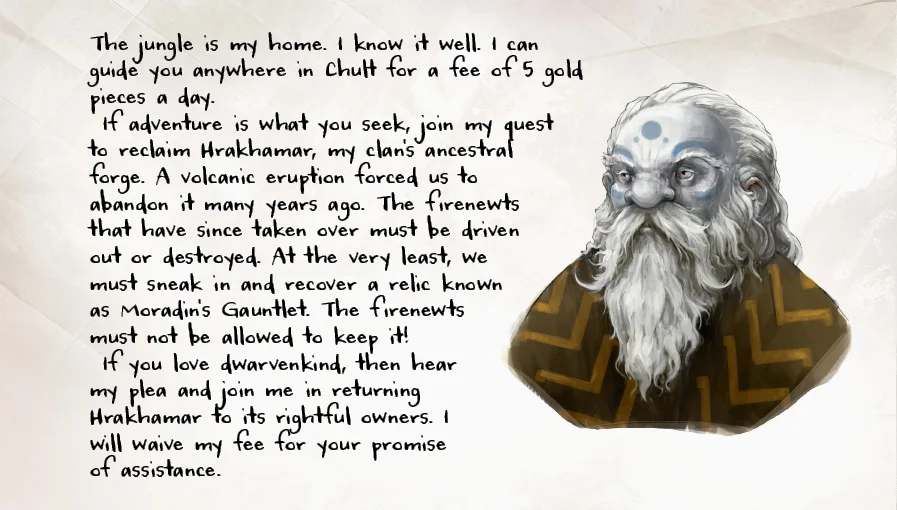 The jungle is my home. I know it well. I can
guide you anywhere in Chult for a fee of 5 gold
pieces a day.
If adventure is what you seek, join my quest
to reclaim Hrakhamar, my clan's ancestral
forge. A volcanic eruption forced us to
abandon it many years ago. The firenewts
that have since taken over must be driven
out or destroyed. At the very least, we
must sneak in and recover a relic known
as Moradin's Gauntlet. The firenewts
must not be allowed to keep it!
If you love dwarvenkind, then hear
my plea and join me in returning
Hrakhamar to its rightful owners. I
will waive my fee for your promise
of assistance.